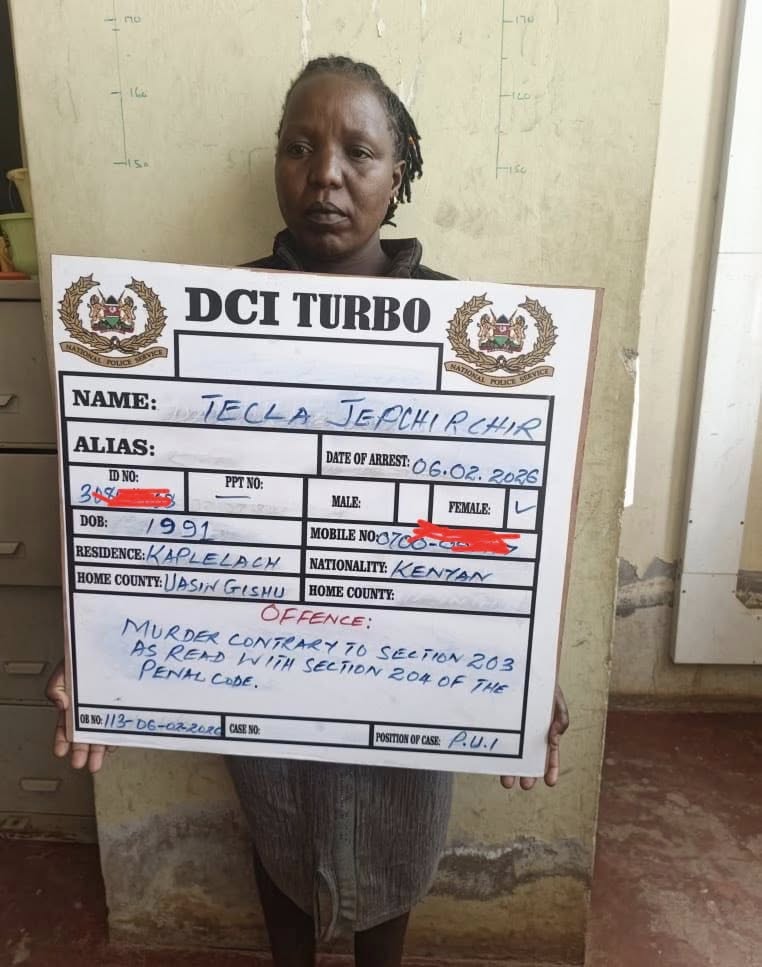 170
170
160
160
150
150
DCI TURBO
NATIONAL POLICE SERVICE
NATIONAL POLICE SERVICE
NAME: TECLA JEPCHIRCHIR
ALIAS:
DATE OF ARREST: 06.02.2026
ID NO:
PPT NO: —
MALE:
FEMALE: ✓
DOB: 1991
MOBILE NO:
RESIDENCE: KAPLELACH
NATIONALITY: KENYAN
HOME COUNTY: UASIN GISHU
HOME COUNTY:
OFFENCE:
MURDER CONTRARY TO SECTION 203
AS READ WITH SECTION 204 OF THE
PENAL CODE.
OB NO: 113-06-02-2026 CASE NO: POSITION OF CASE: P.U.I